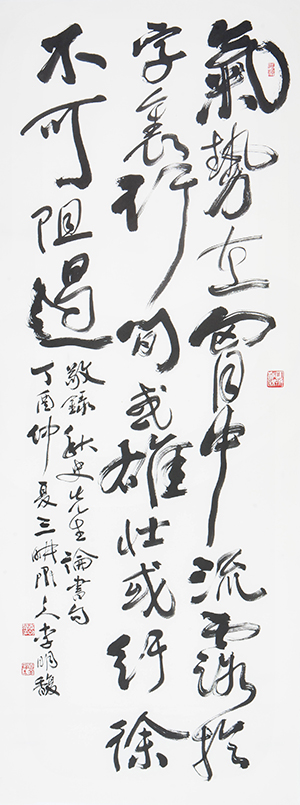 氣勢在胷中流露於
字裏行間或雄壯或紆徐
不可阻遏
敬錄秋史先生論書句
丁酉仲夏三畊人李明馥